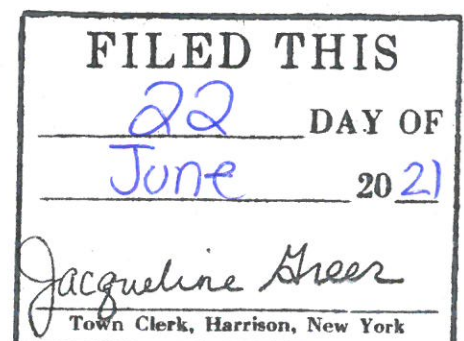 FILED THIS
22 DAY OF
June 20 21
Jacqueline Greer
Town Clerk, Harrison, New York